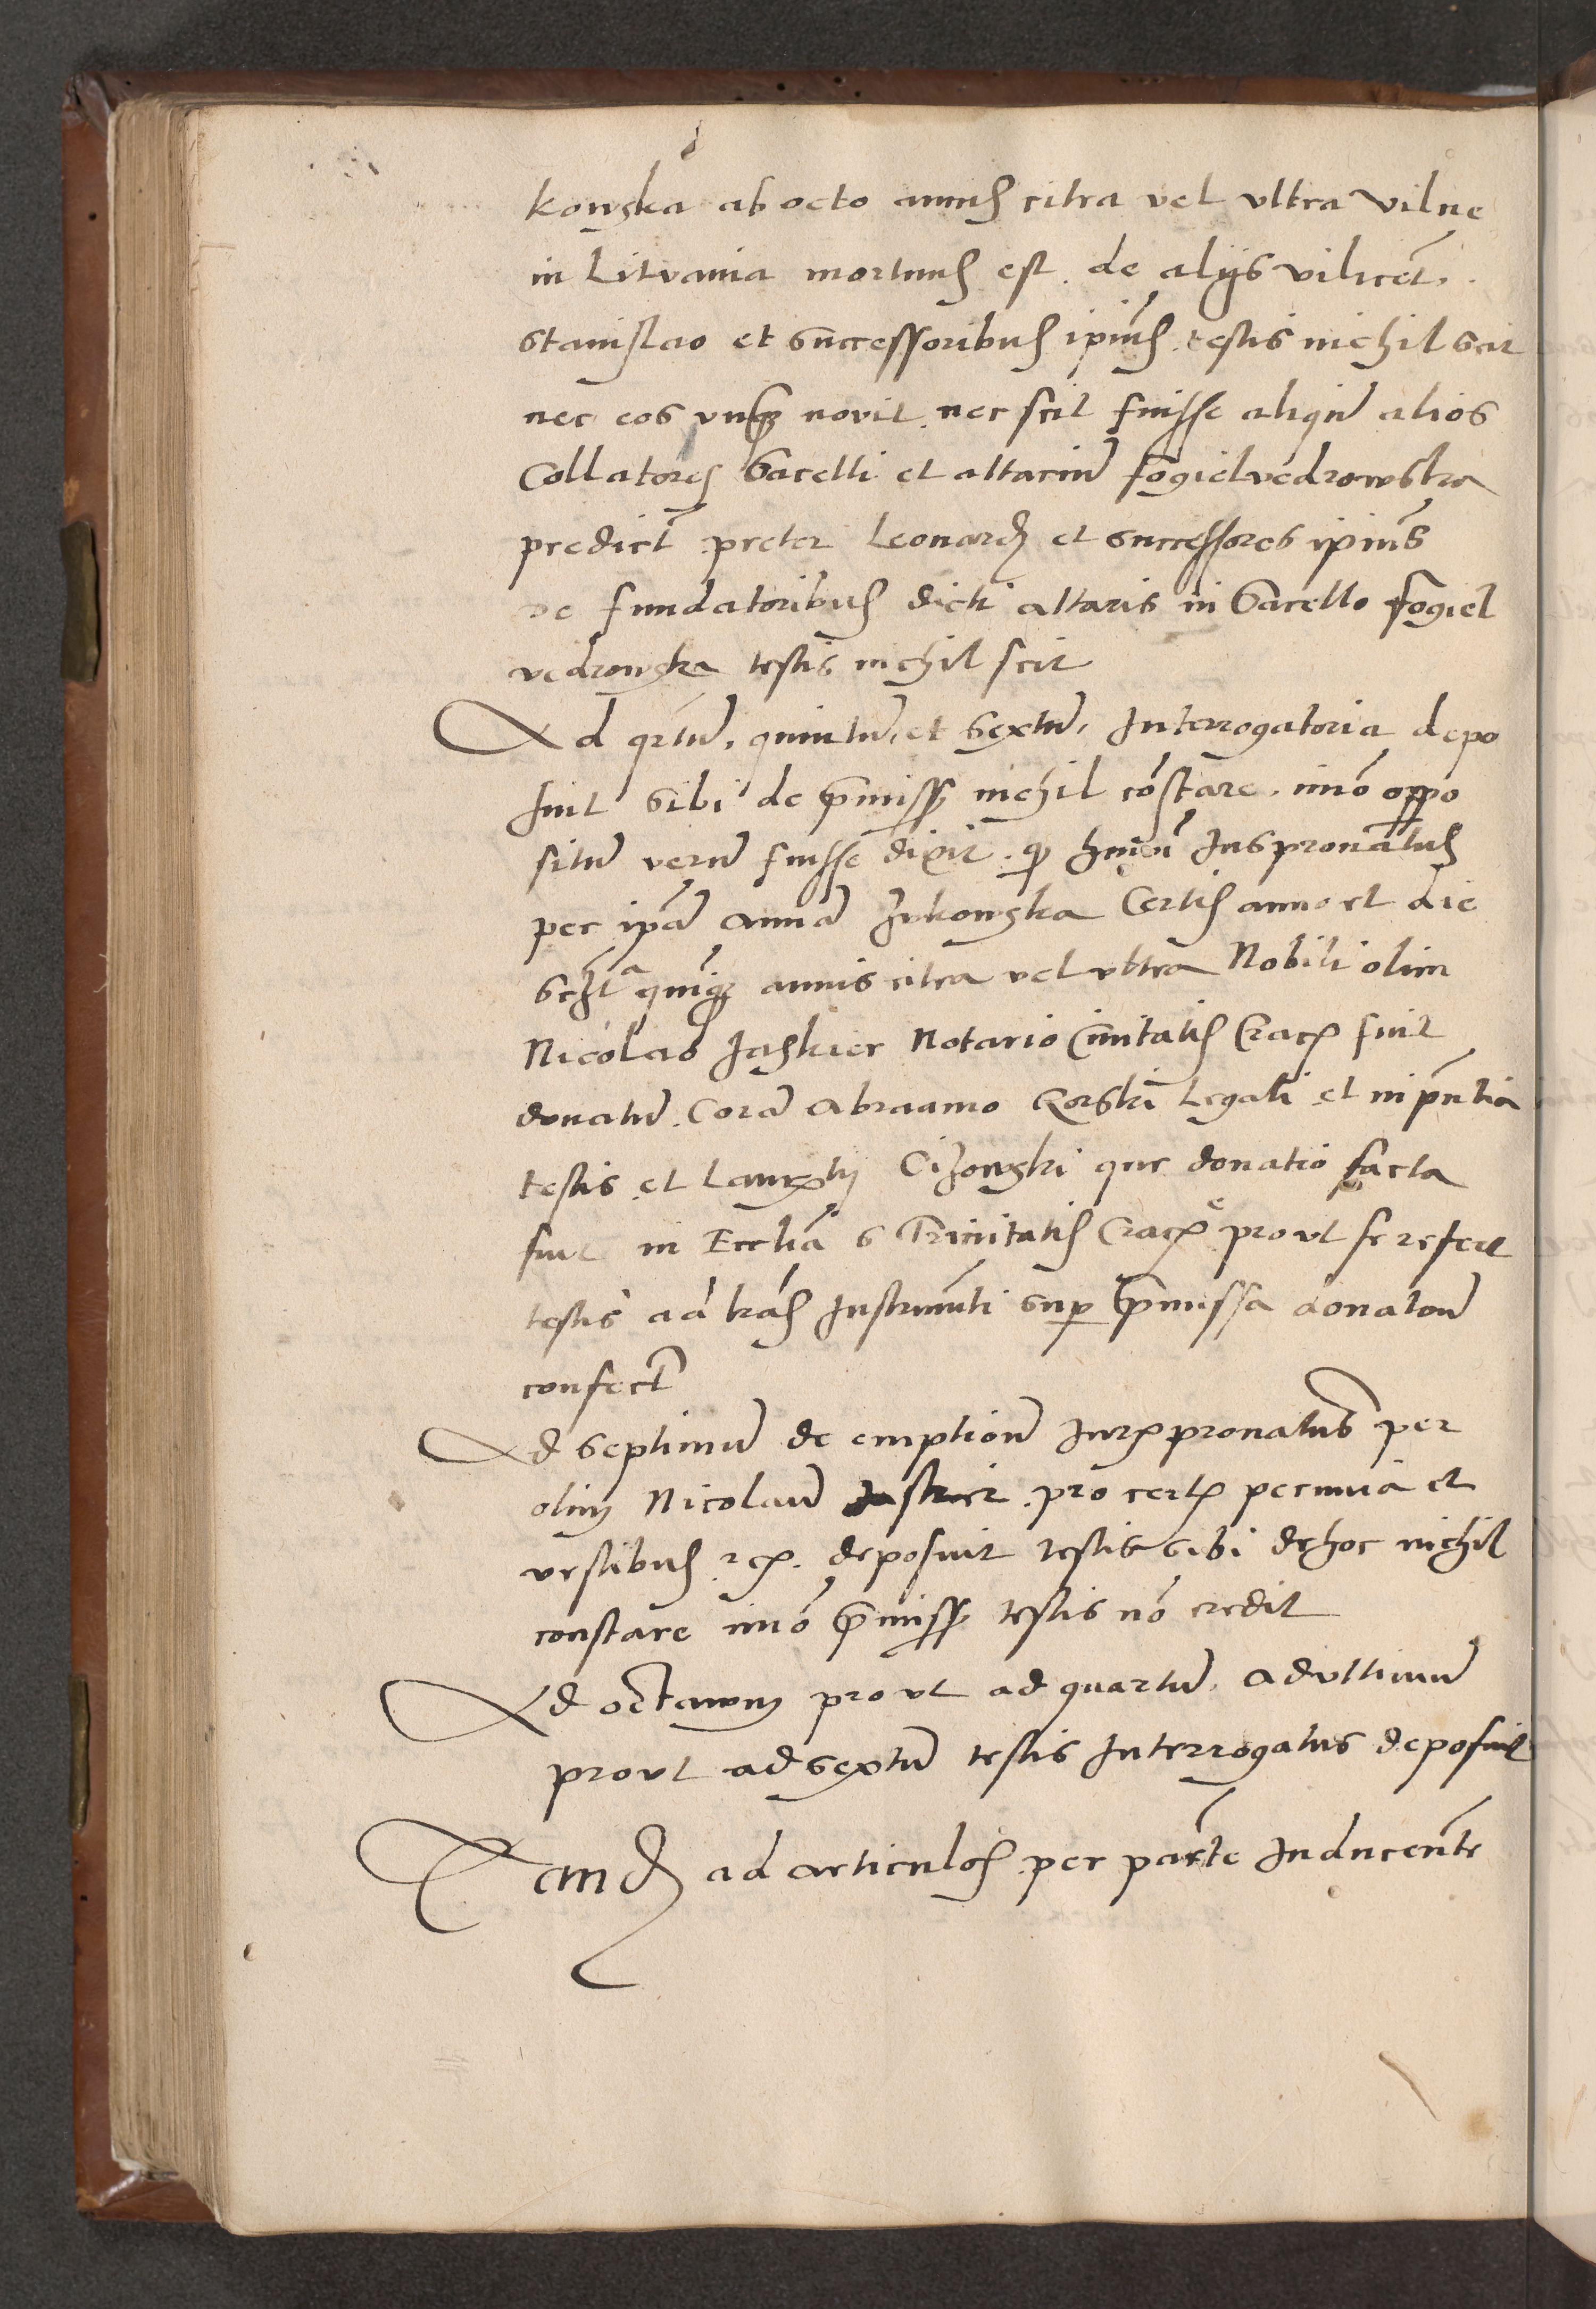 kowska ab octo annis citra vel ultra Vilne
in Litvania mortuus est. de alijs vilicet.
Stanislao et Successoribus ipius testis nichil Scit
nec eos unq3 novit. nec scit fuisse aliqū alios
Collatores Sacelli et altariū fogielvedrowska
predict preter Leonard et successores ipius
de fundatoribus dicti altaris in Sacello fogiel
vedrowska testis nichil scit
Ad qrtū, quintū, et Sextū, Interrogatoria depo
suit Sibi de p̄miss nichil cōstare. imō oppo
situ verū fuisse dixit. q hmōi Juspronatus
per ipā Annā Zukowska Certis anno et die
annis citra vel ultra Nobili olim
Nicolao Jaskier Notario Civitatis Crac fuit
donatū. Corā Abraamo Gorski Legali et in pn̄tia
testis et Laurētij Cizowski que donatio facta
fuit in Eccliā S Trinitatis Crac prout se refert
testis ad lras Instrumēti Sup p̄missa donatōne
confect
Ad Septimū de emptionē Jurispronatus per
olim Nicolaum Jaskier. pro certa pecunia et
vestibus rc. deposuit testis sibi de hoc nichil
constare imō p̄miss testis nō credit
Ad octavum prout ad quartū. Ad ultimū
prout ad Sextū testis Interrogatus deposuit
Tand ad articulos per partē Inducentē